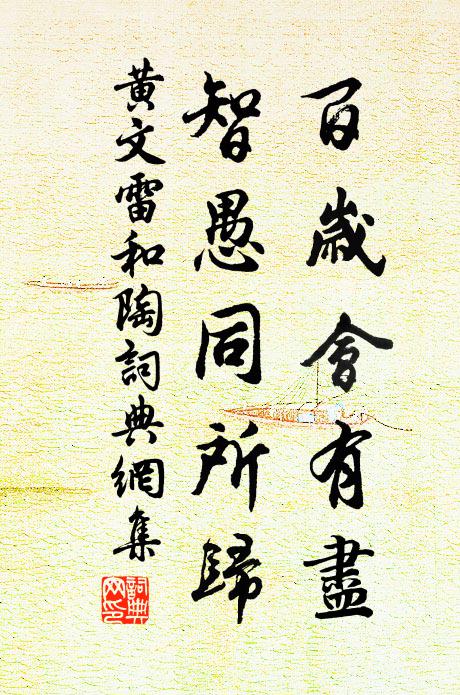 百歲會有盡
智愚同所歸
黃文雷和陶詞典網集
詞典網印